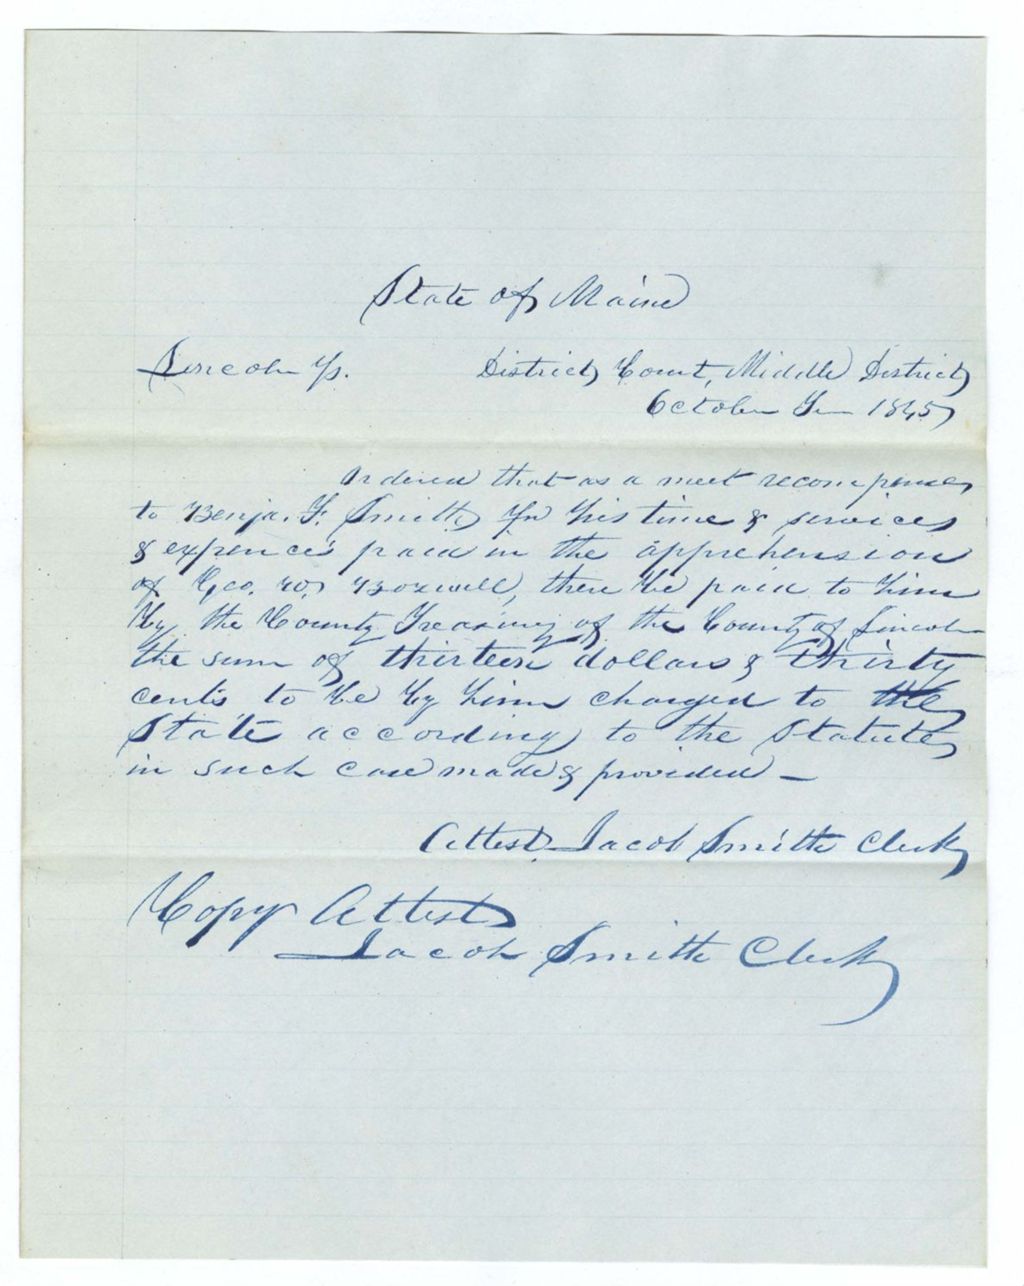 State of Maine
Lincoln Ss. District Court, Middle District
October Term 1845
Ordered that as a meet recompense
to Benja. F. Smith for his time & services
& expences paid in the apprehension
of Geo. W. Boxwell, there be paid to him
by the County Treasury of the County of Lincoln
the sum of thirteen dollars & thirty
cents to be by him charged to the
State according to the Statute
in such case made & provided –
Attest, Jacob Smith Clerk
Copy Attest
Jacob Smith Clerk